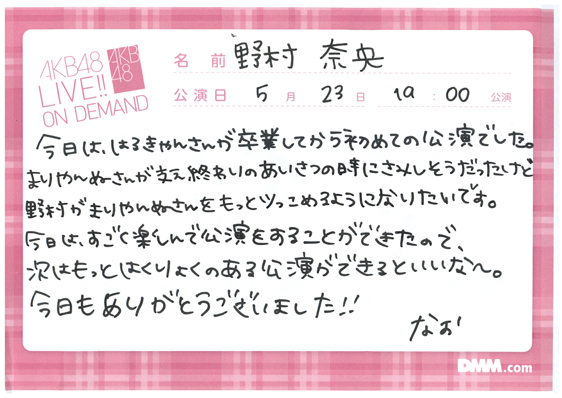 AKB48
LIVE!!
ON DEMAND
AKB
48
名 前 野村 奈央
公演日 5月 23日 19:00 公演
今日は、はるきゃんさんが卒業してから初めての公演でした。
まりやんぬさんが 終わりのあいさつの時にさみしそうだったけど
野村がまりやんぬさんをもっとツッこめるようになりたいです。
今日は、すごく楽しんで公演をすることができたので、
次はもっとはくりょくのある公演ができるといいな〜。
今日もありがとうございました!!
なお
DMM.com